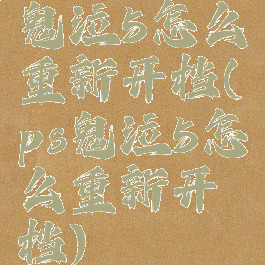 鬼泣5怎么
重新开档(
ps鬼泣5怎
么重新开
档)